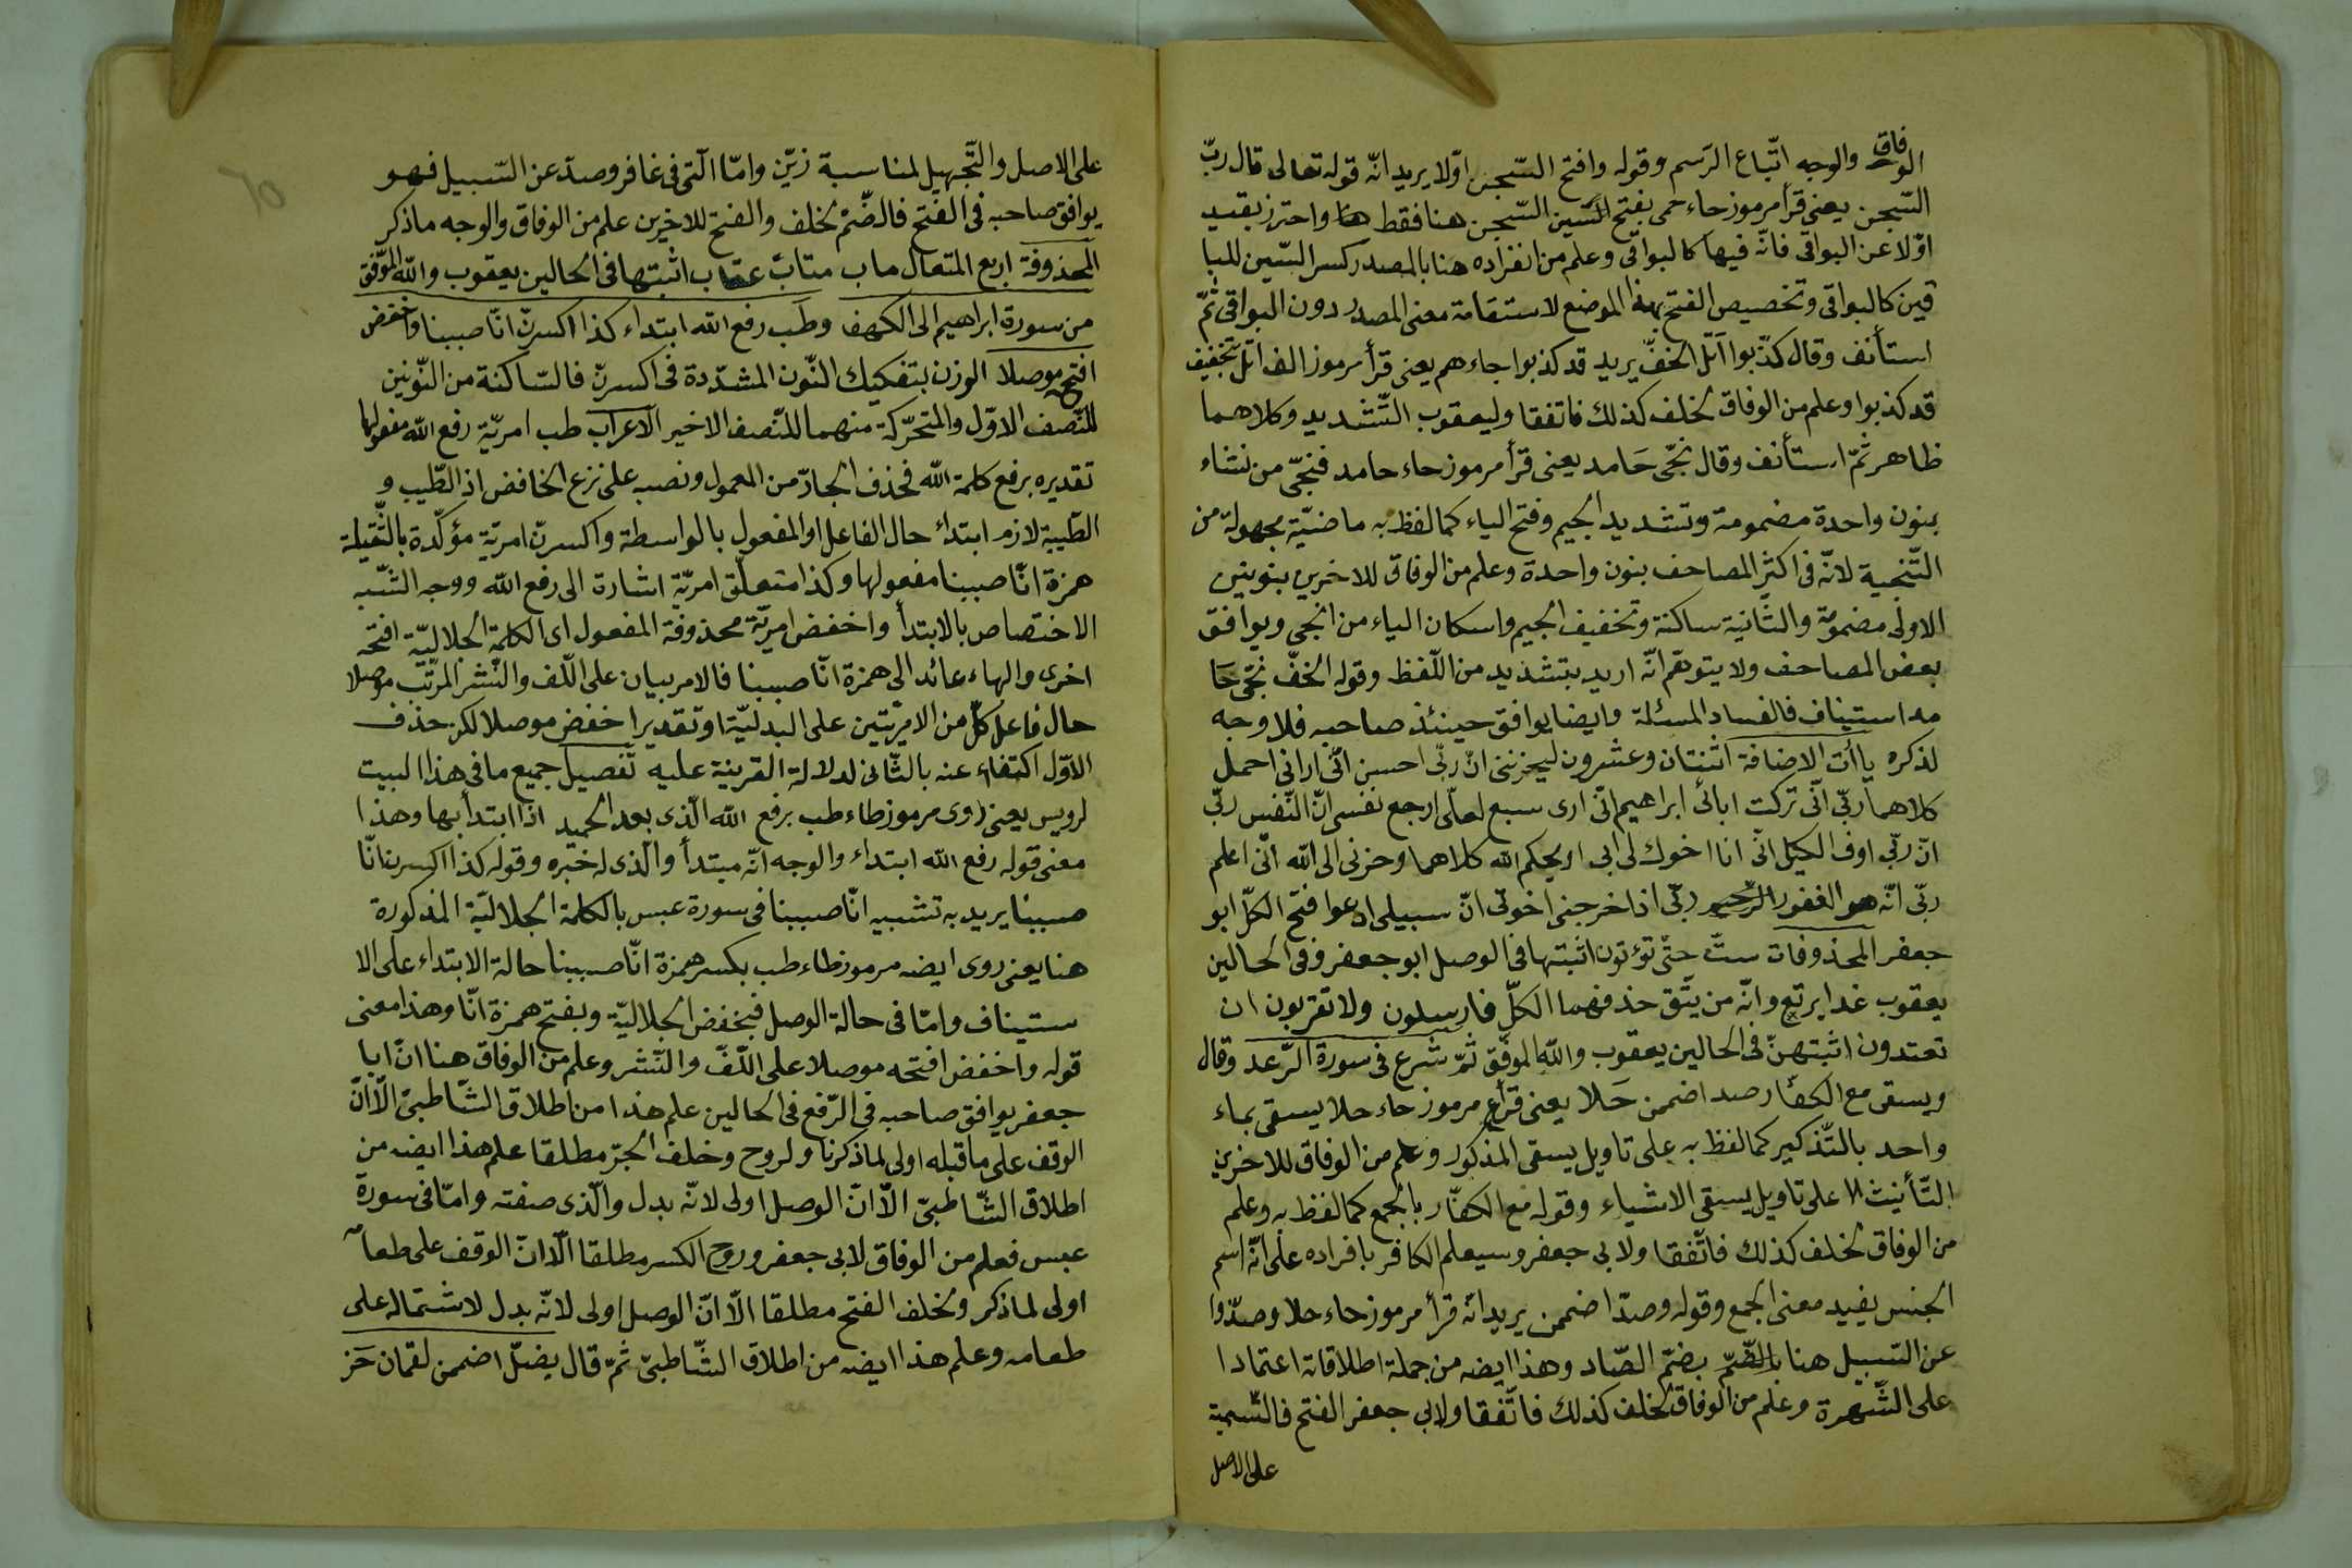 الوفاق والوجه اتّباع الرّسم وقوله وافتح السّجن اوّلا يريد انّه قوله تعالى قال ربّ
السّجن يعنى قرأ مرموز حاء حمى بفتح السّين السّجن هنا فقط واحترز بقيد
اوّلا عن البواقى فانّه فيها كالبواقى وعلم من انفراده هنا بالمصدر كسر السّين للبا
قين كالبواقى وتخصيص الفتح بهذا الموضع لاستقامة معنى المصدر دون البواقى ثمّ
استأنف وقال كذّبوا اتل الخفّ يريد قد كذبوا جاءهم يعنى قرأ مرموز الف اتل بتخفيف
قد كذبوا وعلم من الوفاق لخلف كذلك فاتفقا وليعقوب التّشديد وكلاهما
ظاهر ثمّ استأنف وقال نجّى حَامد يعنى قرأ مرموز حاء حامد فنجّى من نشاء
بنون واحدة مضمومة وتشديد الجيم وفتح الياء كما لفظ به ماضيّة مجهولة من
التّنجية لانّه فى اكثر المصاحف بنون واحدة وعلم من الوفاق للاخرين بنونين
الاولى مضمومة والثانية ساكنة وتخفيف الجيم واسكان الياء من انجى ويوافق
بعض المصاحف ولا يتوهّم انّه اريد بتشديد من اللّفظ وقوله الخفّ نجّى حَا
مد استيناف فالفساد المسئلة وايضا يوافق حينئذ صاحبه فلا وجه
لذكره ياأت الاضافة اثنتان وعشرون ليحزننى انّ ربّى احسن انّى ارانى احمل
كلاهما ربّى انّى تركت ابائى ابراهيم انّى ارى سبع لعلّى ارجع نفسى انّ النّفس ربّى
انّ ربّى اوف الكيل انّى انا اخوك لى ابى او يحكم الله كلاهما وحزنى الى الله انّى اعلم
ربّى انّه هو الغفور الرّحيم ربّى اذ اخرجنى اخوتى انّ سبيلى ادعوا فتح الكلّ ابو
جعفر المحذوفات ستّ حتّى تؤتون اثبتها فى الوصل ابو جعفر وفى الحالين
يعقوب غدا يرتع وانّه من يتّق حذفهما الكلّ فارسلون ولا تقربون ان
تعتدون اثبتهنّ فى الحالين يعقوب والله الموفّق ثمّ شرع فى سورة الرّعد وقال
ويسقى مع الكفّار صد اضممن حَلا يعنى قرأ مرموز حاء حلا يسقى بماء
واحد بالتّذكير كما لفظ به على تاويل يسقى المذكور وعلم من الوفاق للاخرين
التّأنيث على تاويل يسقى الاشياء وقوله مع الكفّار بالجمع كما لفظ به وعلم
من الوفاق لخلف كذلك فاتّفقا ولابى جعفر وسيعلم الكافر بافراده على انّه اسم
الجنس يفيد معنى الجمع وقوله وصدّ اضممن يريد انّه قرأ مرموز حاء حلا وصدّوا
عن السّبيل هنا بالضّمّ بضمّ الصّاد وهذا ايضه من جملة اطلاقاته اعتمادا
على الشّهرة وعلم من الوفاق لخلف كذلك فاتّفقا ولابى جعفر الفتح فالتّسمية
على الاصل
على الاصل والتّجهيل لمناسبة زيّن وامّا الّتى فى غافر وصدّ عن السّبيل فهو
يوافق صاحبه فى الفتح فالضّمّ لخلف والفتح للاخرين علم من الوفاق والوجه ما ذكر
المحذوفة اربع المتعال ماب متاب عقاب اثبتها فى الحالين يعقوب والله الموّفق
من سورة ابراهيم الى الكهف وطَب رفع الله ابتداء كذا اكسرنّ انّا صببنا واخفض
افتح موصلا الوزن بتفكيك النّون المشدّدة فى اكسرنّ فالسّاكنة من النّونين
للنّصف الاوّل والمتحرّكة منهما للنّصف الاخير الاعراب طب امريّة رفع الله مفعولها
تقديره برفع كلمة الله فحذف الجارّ من المعمول ونصبه على نزع الخافض اذ الطّيب و
الطّيبة لازم ابتداء حال الفاعل او المفعول بالواسطة واكسرنّ امريّة مؤكّدة بالثّقيلة
همزة انّا صببنا مفعولها وكذا متعلّق امريّة اشارة الى رفع الله ووجه الشّبه
الاختصاص بالابتدأ واخفض امريّة محذوفة المفعول اى الكلمة الجلاليّة افتحه
اخرى والهاء عائد الى همزة انّا صببنا فالامر بيان على اللّف والنّشر المرتّب موصلا
حال فاعل كلّ من الامريّتين على البدليّة او تقديرا اخفض موصلا لكن حذف
الاوّل اكتفاء عنه بالثّانى لدلالة القرينة عليه تفصيل جميع ما فى هذا البيت
لرويس يعنى روى مرموز طاء طب برفع الله الّذى بعد الحميد اذا ابتدأ بها وهذا
معنى قوله رفع الله ابتداء والوجه انّه مبتدأ والّذى له خبره وقوله كذا اكسرن انّا
صببنا يريد به تشبيه انّا صببنا فى سورة عبس بالكلمة الجلاليّة المذكورة
هنا يعنى روى ايضه مرموز طاء طب بكسر همزة انّا صببنا حالة الابتداء على الا
ستيناف وامّا فى حالة الوصل فبخفض الجلاليّة وبفتح همزة انّا وهذا معنى
قوله واخفض افتحه موصلا على اللّفّ والنّشر وعلم من الوفاق هنا انّ ابا
جعفر يوافق صاحبه فى الرّفع فى الحالين علم هذا من اطلاق الشّاطبىّ الّا انّ
الوقف على ما قبله اولى لما ذكرنا ولروح وخلف الجرّ مطلقا علم هذا ايضه من
اطلاق الشّاطبىّ الّا انّ الوصل اولى لانّه بدل والّذى صفته وامّا فى سورة
عبس فعلم من الوفاق لابى جعفر وروح الكسر مطلقا الّا انّ الوقف على طعامه
اولى لما ذكر ولخلف الفتح مطلقا الّا انّ الوصل اولى لانّه بدل لاشتماله على
طعامه وعلم هذا ايضه من اطلاق الشّاطبىّ ثمّ قال يضلّ اضممن لقمان حَز